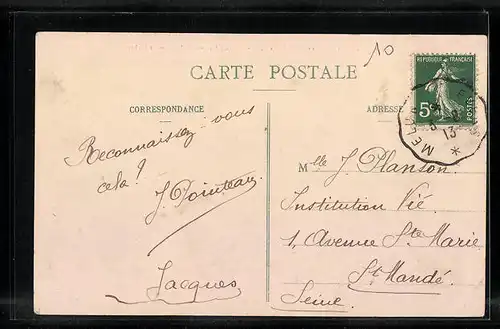 10
CARTE POSTALE
REPUBLIQUE FRANÇAISE
5c
POSTES
13
CORRESPONDANCE
ADRESSE
Reconnaissez-vous
cela?
J. Pointeau
Jacques
Mlle J. Planson
Institution Vié
1, Avenue Ste Marie
St Mandé.
Seine.